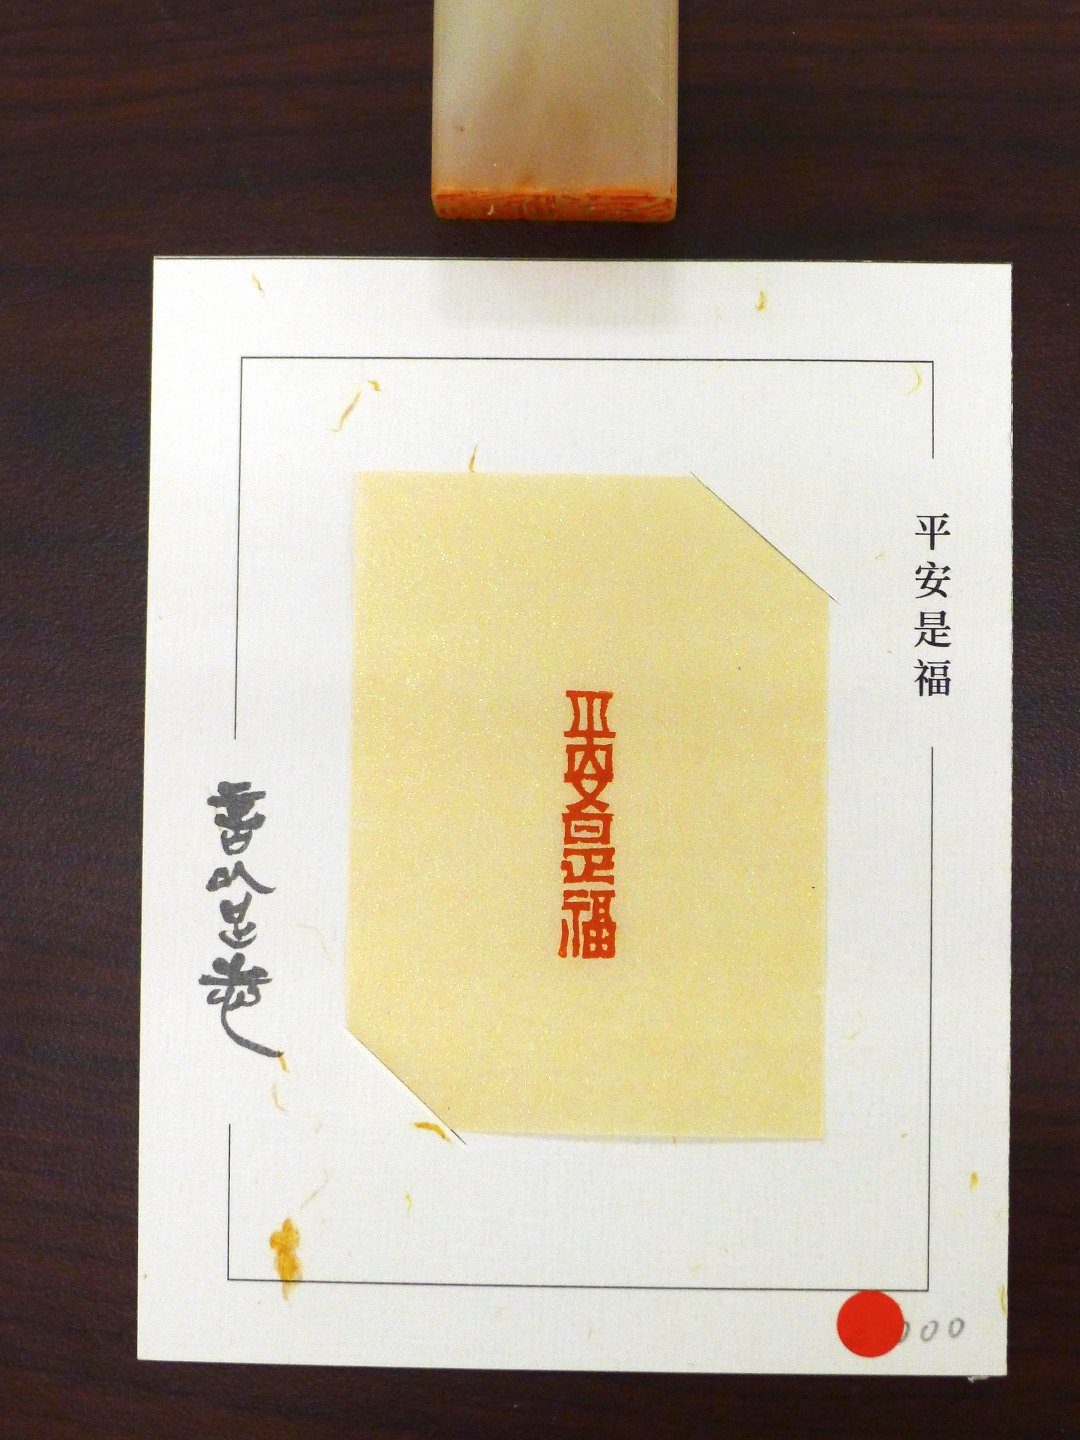 平安是福
平安是福
000